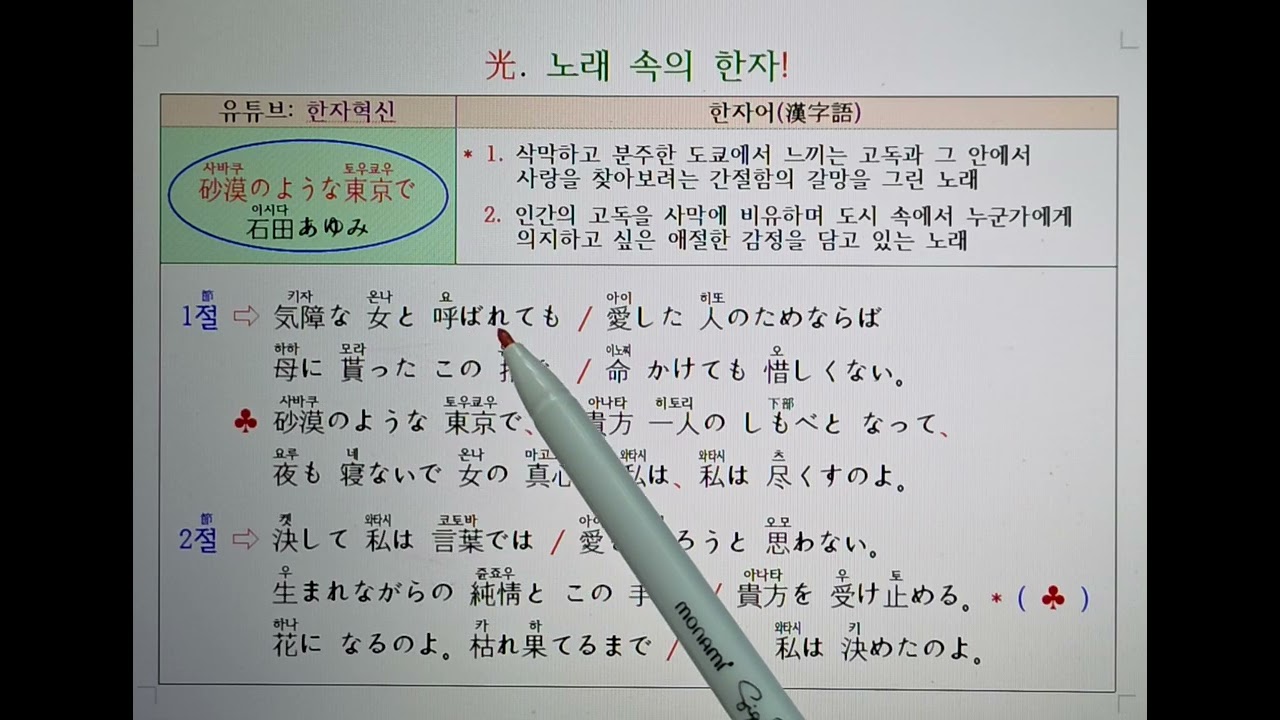 光. 노래 속의 한자!
유튜브: 한자혁신
한자어(漢字語)
사바쿠 토우쿄우
砂漠のような東京で
이시다
石田あゆみ
* 1. 삭막하고 분주한 도쿄에서 느끼는 고독과 그 안에서
사랑을 찾아보려는 간절함의 갈망을 그린 노래
2. 인간의 고독을 사막에 비유하며 도시 속에서 누군가에게
의지하고 싶은 애절한 감정을 담고 있는 노래
節 키자 온나 요 아이 히또
1절 ⇨ 気障な 女と 呼ばれても / 愛した 人のためならば
하하 모라 이노찌 오
母に 貰った この / 命 かけても 惜しくない。
사바쿠 토우쿄우 아나타 히토리 下部
♣ 砂漠のような 東京で、貴方 一人の しもべと なって、
요루 네 온나 마고 와타시 와타시 츠
夜も 寝ないで 女の 真心 私は、私は 尽くすのよ。
節 켓 와타시 코토바 오모
2절 ⇨ 決して 私は 言葉では / 愛 ろうと 思わない。
우 쥰죠우 아나타 우 토
生まれながらの 純情と この 手 / 貴方を 受け止める。 * ( ♣ )
하나 카 하 와타시 키
花に なるのよ。枯れ果てるまで / 私は 決めたのよ。
monami